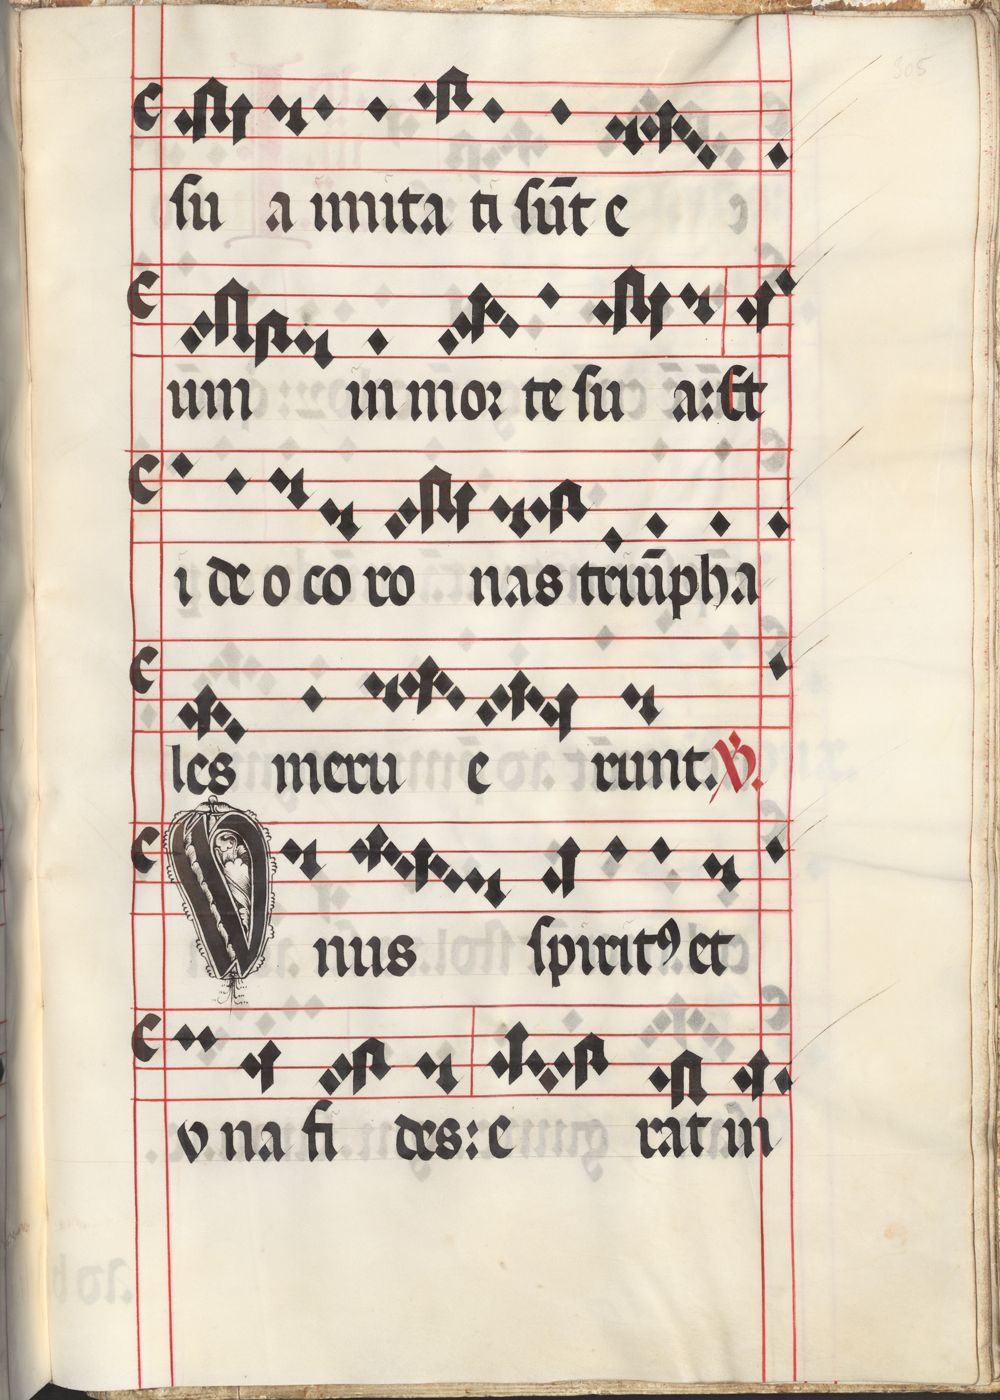 305
su a imita ti sūt e
um in mor te su a: Et
i de o co ro nas triūpha
les meru e runt. ℣.
Unus spiritꝰ et
v na fi des: e rat in